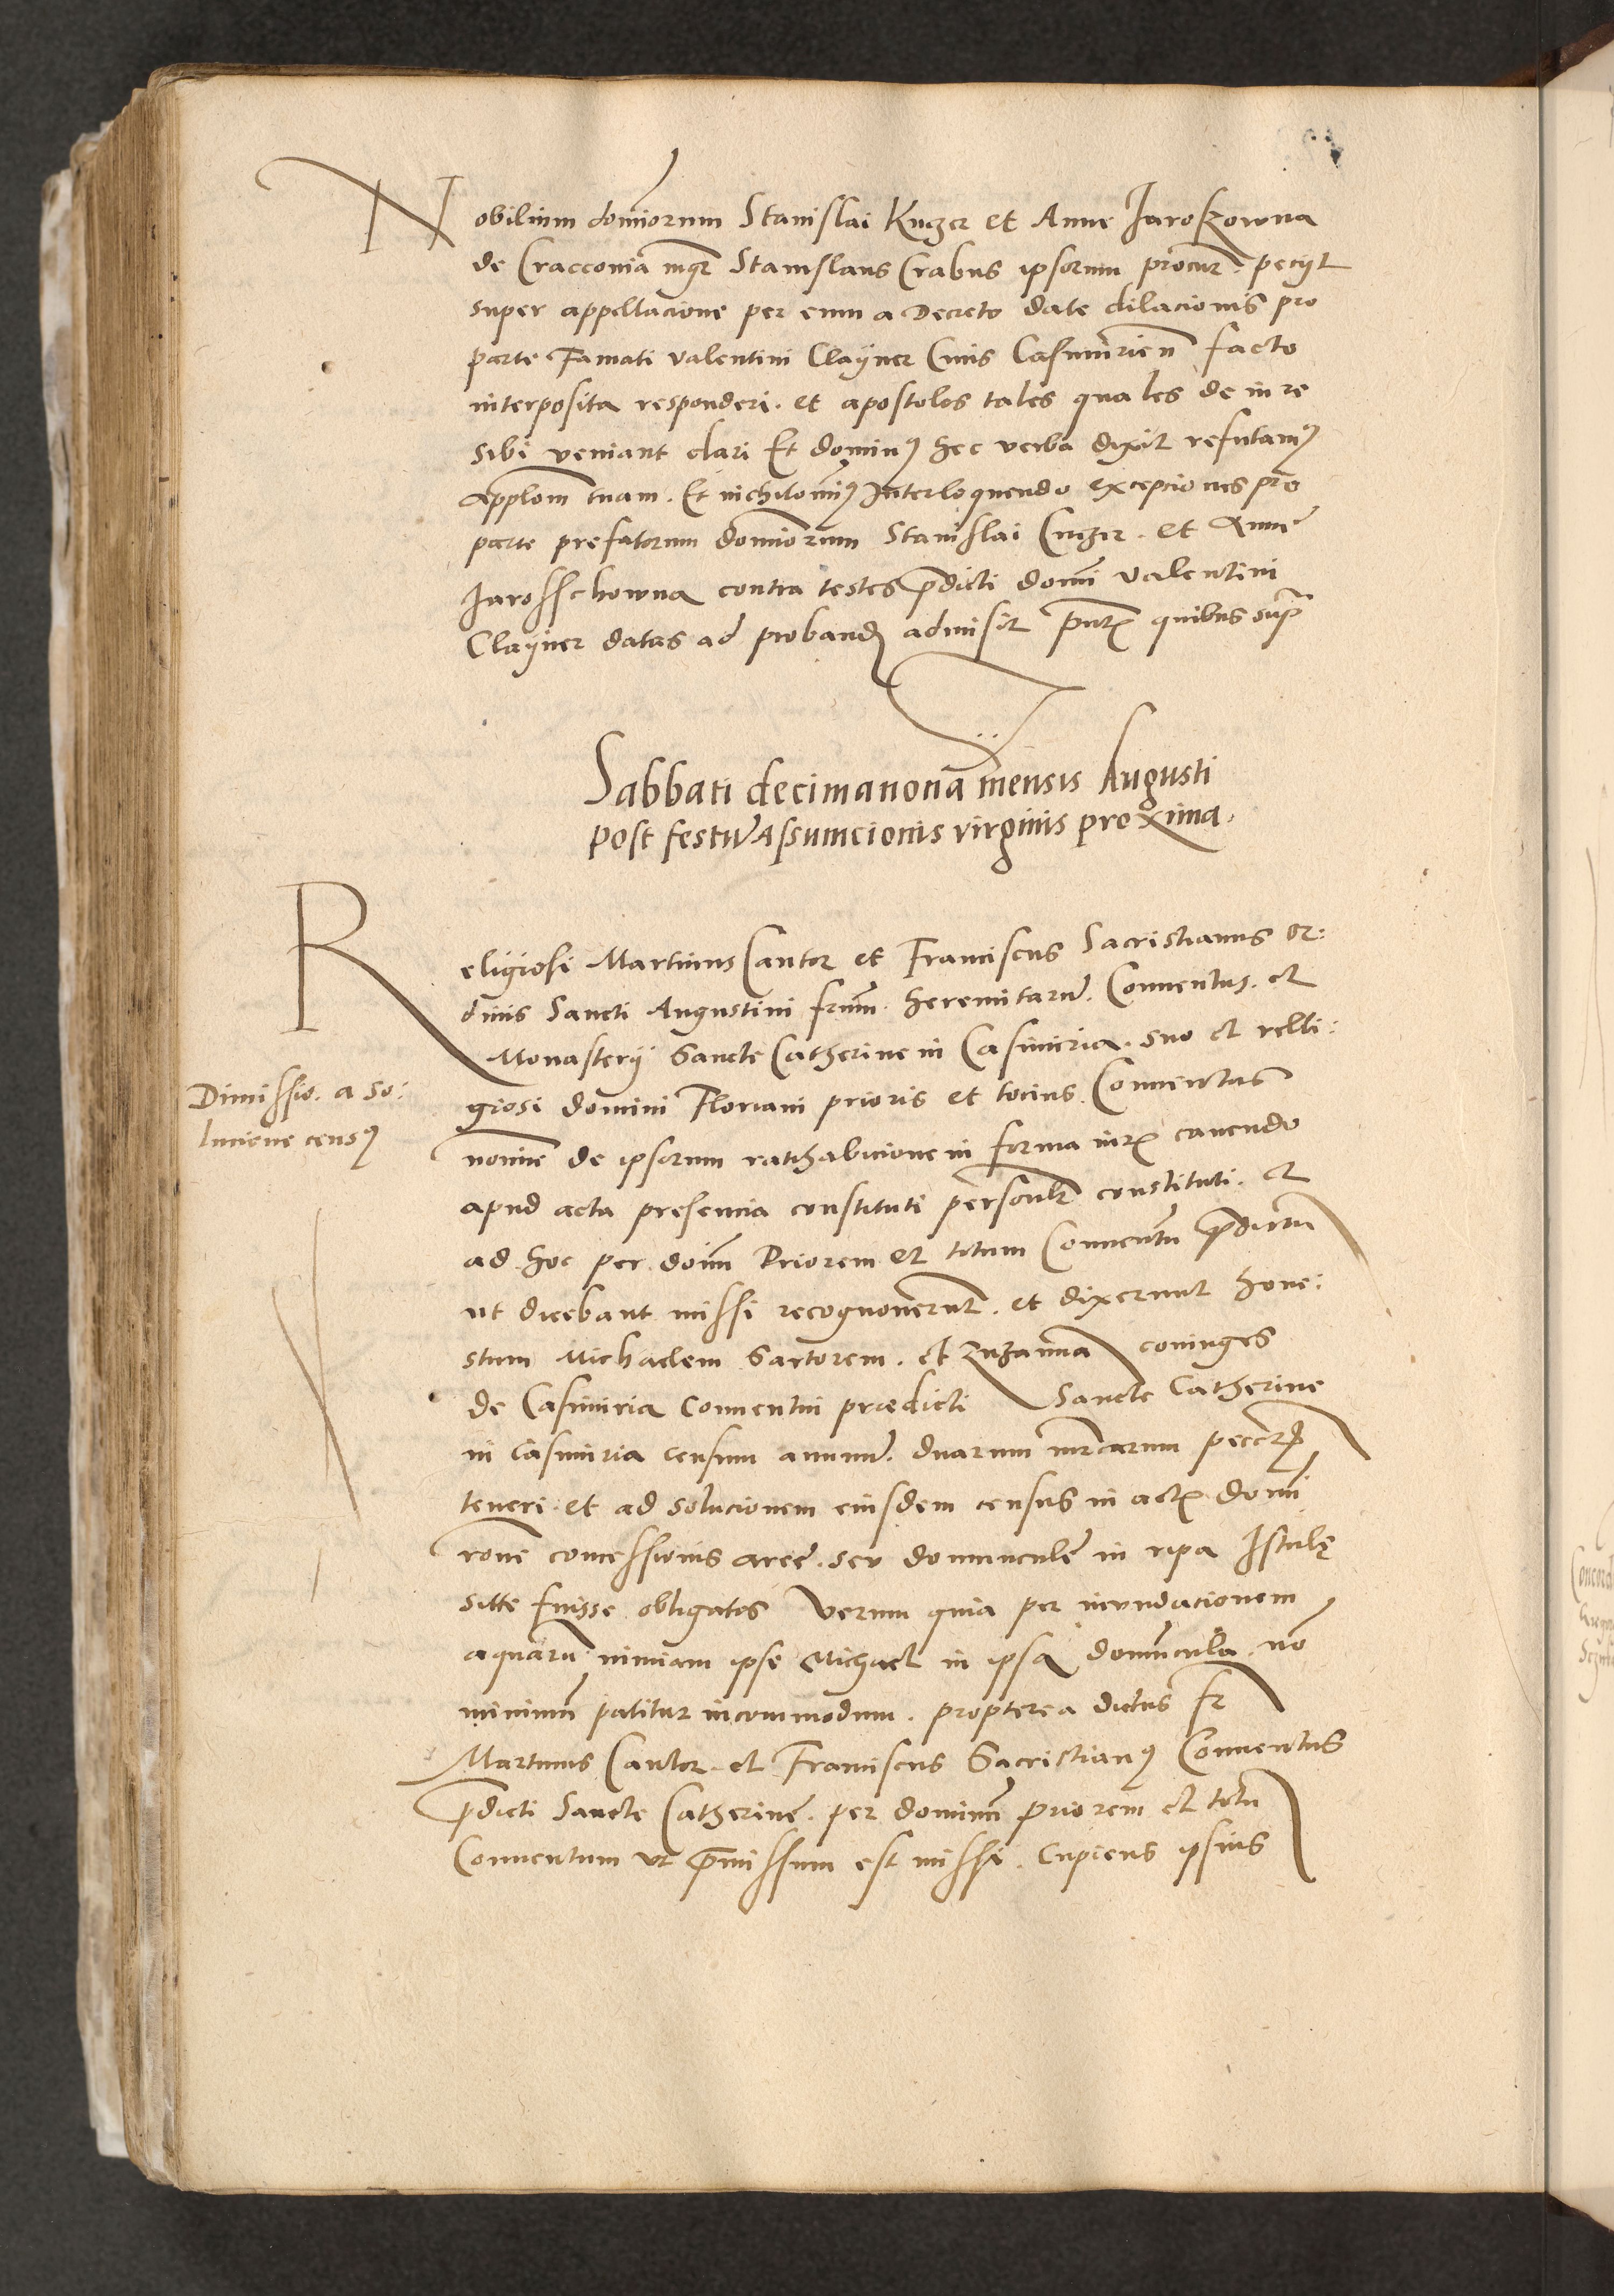 Nobilium dominorum Stanislai Kuger et Anne Jaroszowna
de Cracconia mgr Stanislaus Crabus ipsorum procur. peciit
super appellacione per eum a Decreto date dilacionis pro
parte Famati valentini Clayner Civis Casimirien facto
interposita responderi. et apostolos tales quales de iure
sibi veniant dari Et dominus hec verba dixit refutamus
Applom tuam. Et nichilominus Interloquendo excepciones pro
parte prefatorum dominorum Stanislai Cuger. et Anne
Jarosschowna contra testes pdicti domini valentini
Clayner datas ad proband admisit pntibus quibus supra
Sabbati decimanona mensis Augusti
post festum Assumcionis virginis proxima.
Religiosi Martinus Cantor et Franciscus Sacristianus or:
dinis Sancti Augustini frum heremitarum. Conventus. et
Monasterii Sancte Catherine in Casimiria. suo et relli:
Dimissio. a so:
lucione census
giosi domini Floriani prioris et tocius Conventus
nomine de ipsorum ratihabicione in forma iuris cavendo
apud acta presencia constituti personaliter constituti. et
ad hoc per. doim Priorem et totum Conventum pdictum
ut dicebant missi recognoverunt. et dixerunt hone:
stum Michaelem Sartorem. et Zuzanna coniuges
de Casimiria Conventui praedicti Sancte Catherine
in Casimiria censum annum. duarum mrcarum peccorum
teneri. et ad solucionem eiusdem census in actis domi
rone concessionis aree. seu domuncule in ripa Istule
sitte fuisse obligatos Verum quia per inundacionem
aquarum nimiam ipse Michael in ipsa domuncula. no
minimum patitur incommodum. propterea dictus fr
Martinus Cantor. et Franciscus Sacristianus Conventus
pdicti Sancte Catherine. per dominum priorem et totum
Conventum ut pmissum est missi. Cupiens ipsius